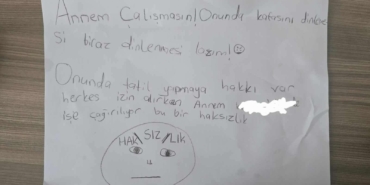 Annem Çalışmasın! Onunda kafasını dinleme
si biraz dinlenmesi lazım!
Onunda tatil yapmaya hakkı var
herkes izin alırken Annem
işe çağırılıyor bu bir haksızlık
HAK SIZ LIK